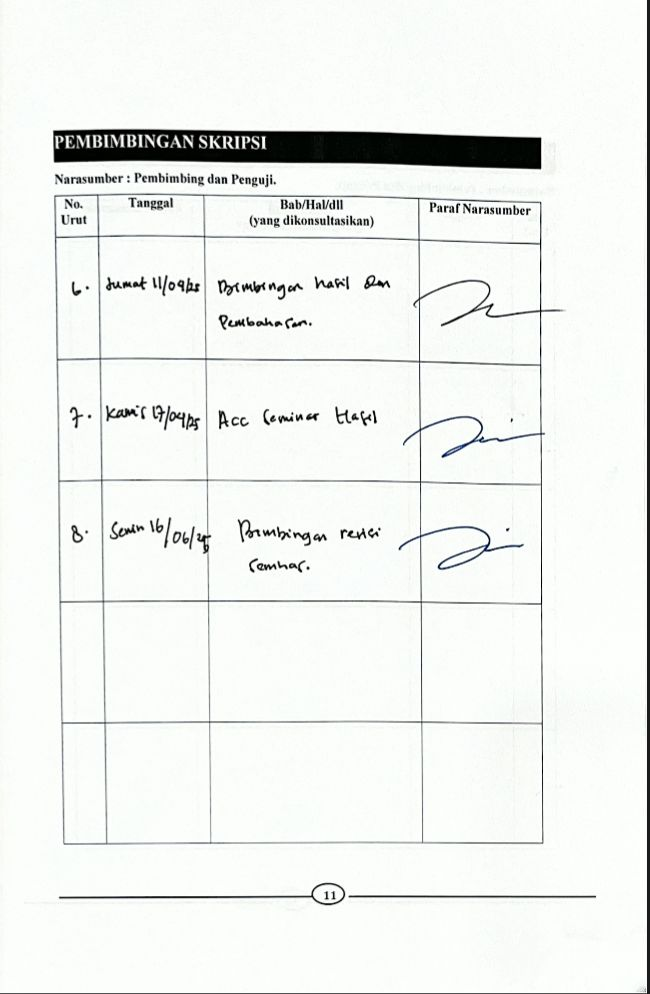 PEMBIMBINGAN SKRIPSI
Narasumber : Pembimbing dan Penguji.
No. Urut Tanggal Bab/Hal/dll (yang dikonsultasikan) Paraf Narasumber
6. Jumat 11/04/25 Bimbingan hasil dan
Pembahasan.
7. Kamis 17/04/25 Acc Seminar Hasil
8. Senin 16/06/25 Bimbingan revisi
Semhas.
11